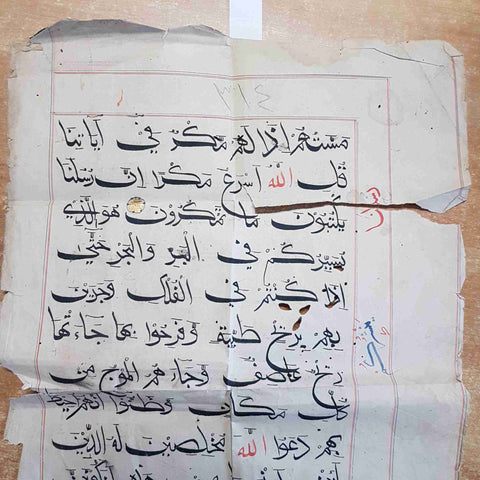 ٣١٤
مَسَّتْهُمْ اِذَا لَهُمْ مَكْرٌ فِيْ اٰيَاتِنَا
قُلِ اللّٰهُ اَسْرَعُ مَكْرًا اِنَّ رُسُلَنَا
يَكْتُبُوْنَ مَا تَمْكُرُوْنَ هُوَ الَّذِيْ
يُسَيِّرُكُمْ فِي الْبَرِّ وَالْبَحْرِ حَتّٰى
اِذَا كُنْتُمْ فِي الْفُلْكِ وَجَرَيْنَ
بِهِمْ بِرِيْحٍ طَيِّبَةٍ وَفَرِحُوْا بِهَا جَاءَتْهَا
رِيْحٌ عَاصِفٌ وَجَاءَهُمُ الْمَوْجُ مِنْ
كُلِّ مَكَانٍ وَظَنُّوْا اَنَّهُمْ اُحِيْطَ
بِهِمْ دَعَوُا اللّٰهَ مُخْلِصِيْنَ لَهُ الدِّيْنَ